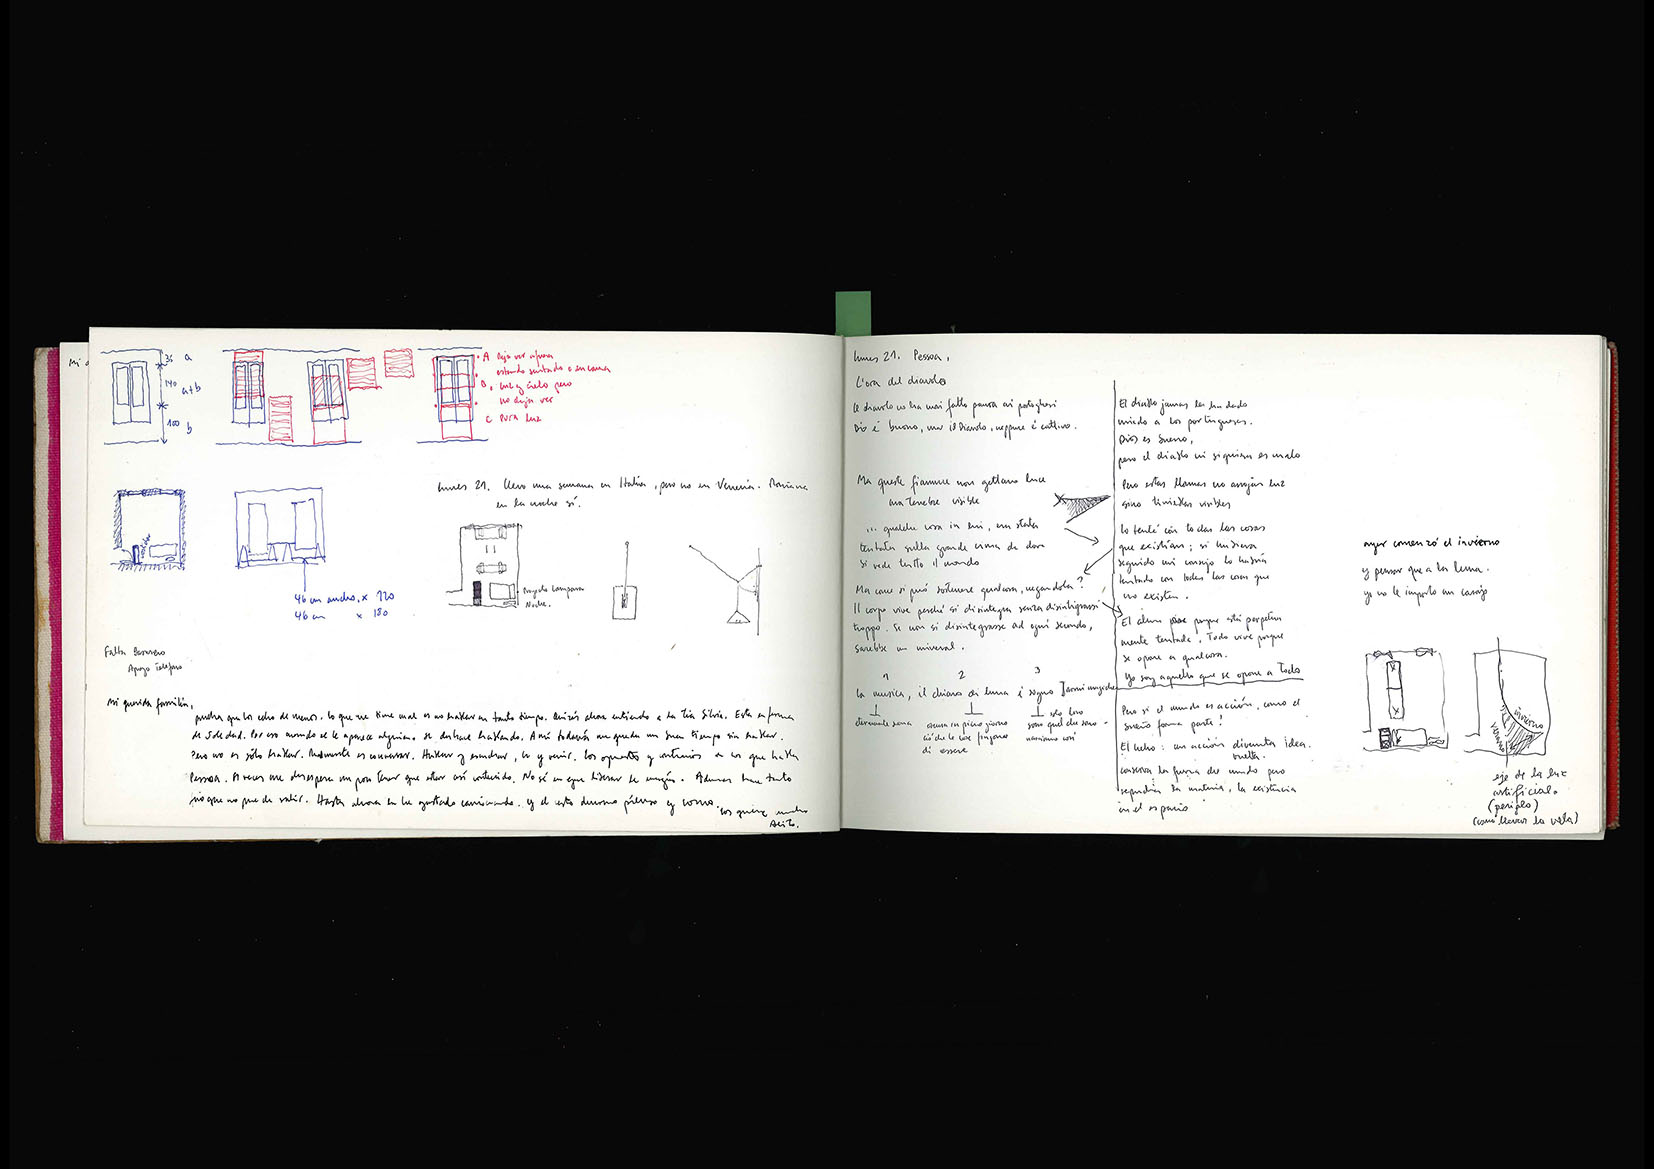 Mi q
35 a
140 a+b
100 b
A deja ver afuera
estando sentado o en cama
B. luz y cielo pero
no deja ver
C pura luz
lunes 21. Llevo una semana en Italia, pero no en Venecia. Mañana
en la noche sí.
46 cm ancho x 220
46 cm x 180
Proyecto lámpara
Noche.
Falta Basurero
Apoyo Teléfono
Mi querida familia,
pucha que los echo de menos. lo que me tiene mal es no hablar en tanto tiempo. Quizás ahora entiendo a la Tía Silvia. Esta enferma
de Soledad. Por eso cuando se le aparece alguien se deshace hablando. A mí todavía me queda un buen tiempo sin hablar.
Pero no es sólo hablar. Realmente es conversar. Hablar y escuchar, ir y venir. los opuestos y contrarios de los que habla
Pessoa. A veces me desespera un poco tener que estar así contenido. No sé en que liberar la energía. Además hace tanto
frío que no puedo salir. Hasta ahora en lo gastado caminando. y el resto duermo pienso y como.
los quiere mucho
lunes 21. Pessoa.
L'ora del diavolo
Il diavolo no ha mai fatto paura ai portoghesi
Dio è buono, ma il Diavolo, neppure è cattivo.
Ma queste fiamme non gettano luce
ma tenebre visibile
... qualche cosa in lui, una statua
tentata sulla grande cima da dove
si vede tutto il mondo
Ma come si può sostenere qualcosa, negandola?
Il corpo vive perché si disintegra senza disintegrarsi
troppo. Se non si disintegrasse ad ogni secondo,
sarebbe un minerale.
1 2 3
la musica, il chiaro di luna i sogno
sono quel che sono
di essere
El diablo jamas les ha dado
miedo a los portugueses.
Dios es bueno,
pero el diablo ni siquiera es malo
Pero estas llamas no arrojan luz
sino tinieblas visibles
lo tenté con todas las cosas
que existían; si hubiera
seguido mi consejo lo habría
tentado con todas las cosas que
no existen.
El alma vive porque está perpetua
mente tentada. Todo vive porque
se opone a qualcosa.
Yo soy aquello que se opone a Todo
Pero si el mundo es acción, como el
sueño forma parte?
El hecho: una acción diventa idea.
vuelta.
conserva la fuerza del mundo pero
repudia la materia, la existencia
en el espacio
ayer comenzó el invierno
y pensar que a la luna.
ya no le importa un carajo
invierno
verano
eje de la luz
artificial.
(periplo)
(como llevar la vela)